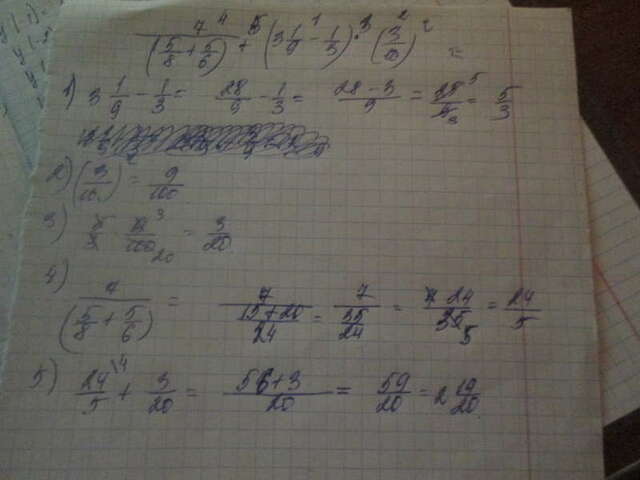 7/(5/8 + 5/6) + (3 1/9 - 1/3) · (3/10)² =
1) 3 1/9 - 1/3 = 28/9 - 1/3 = 28-3/9 = 25/9 = 5/3
2) (3/10)² = 9/100
3) 5/3 · 9/100 = 3/20
4) 7/(5/8 + 5/6) = 7/(15+20/24) = 7/(35/24) = 7 · 24/35 = 24/5
5) 24/5 + 3/20 = 56+3/20 = 59/20 = 2 19/20